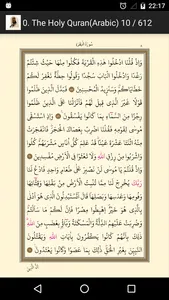 22:17
0. The Holy Quran(Arabic) 10 / 612
سورة البقرة
وَإِذْ قُلْنَا ادْخُلُوا هَٰذِهِ الْقَرْيَةَ فَكُلُوا مِنْهَا حَيْثُ شِئْتُمْ
رَغَدًا وَادْخُلُوا الْبَابَ سُجَّدًا وَقُولُوا حِطَّةٌ نَغْفِرْ لَكُمْ
خَطَايَاكُمْ وَسَنَزِيدُ الْمُحْسِنِينَ فَبَدَّلَ الَّذِينَ ظَلَمُوا
قَوْلًا غَيْرَ الَّذِي قِيلَ لَهُمْ فَأَنْزَلْنَا عَلَى الَّذِينَ ظَلَمُوا
رِجْزًا مِنَ السَّمَاءِ بِمَا كَانُوا يَفْسُقُونَ وَإِذِ اسْتَسْقَىٰ
مُوسَىٰ لِقَوْمِهِ فَقُلْنَا اضْرِبْ بِعَصَاكَ الْحَجَرَ فَانْفَجَرَتْ
مِنْهُ اثْنَتَا عَشْرَةَ عَيْنًا قَدْ عَلِمَ كُلُّ أُنَاسٍ مَشْرَبَهُمْ كُلُوا
وَاشْرَبُوا مِنْ رِزْقِ اللَّهِ وَلَا تَعْثَوْا فِي الْأَرْضِ مُفْسِدِينَ
وَإِذْ قُلْتُمْ يَا مُوسَىٰ لَنْ نَصْبِرَ عَلَىٰ طَعَامٍ وَاحِدٍ فَادْعُ لَنَا
رَبَّكَ يُخْرِجْ لَنَا مِمَّا تُنْبِتُ الْأَرْضُ مِنْ بَقْلِهَا وَقِثَّائِهَا
وَفُومِهَا وَعَدَسِهَا وَبَصَلِهَا قَالَ أَتَسْتَبْدِلُونَ الَّذِي هُوَ أَدْنَىٰ
بِالَّذِي هُوَ خَيْرٌ اهْبِطُوا مِصْرًا فَإِنَّ لَكُمْ مَا سَأَلْتُمْ
وَضُرِبَتْ عَلَيْهِمُ الذِّلَّةُ وَالْمَسْكَنَةُ وَبَاءُوا بِغَضَبٍ مِنَ اللَّهِ
ذَٰلِكَ بِأَنَّهُمْ كَانُوا يَكْفُرُونَ بِآيَاتِ اللَّهِ وَيَقْتُلُونَ
النَّبِيِّينَ بِغَيْرِ الْحَقِّ ذَٰلِكَ بِمَا عَصَوْا وَكَانُوا يَعْتَدُونَ